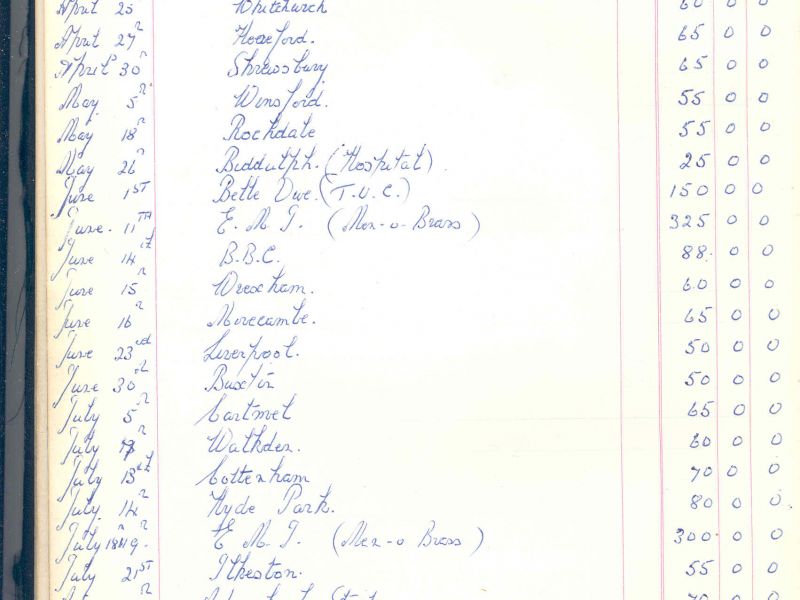 April 25 Whitchurch 60 0 0
April 27 Hereford. 65 0 0
April 30 Shrewsbury 65 0 0
May 5 Winsford. 55 0 0
May 18 Rochdale 55 0 0
May 26 Biddulph. (Hospital) 25 0 0
June 1ST Belle Vue. (T.U.C.) 150 0 0
June. 11TH E. M. I. (Men-o-Brass) 325 0 0
June 14 B.B.C. 88. 0 0
June 15 Wrexham. 60 0 0
June 16 Morecambe. 65 0 0
June 23rd Liverpool. 50 0 0
June 30 Buxton 50 0 0
July 5 Cartmel 65 0 0
July Walkden. 60 0 0
July 13 Cottenham 70 0 0
July 14 Hyde Park. 80 0 0
July 18 19. E. M. I. (Men-o Brass) 300 0 0
July 21ST Ilkeston. 55 0 0
70 0 0